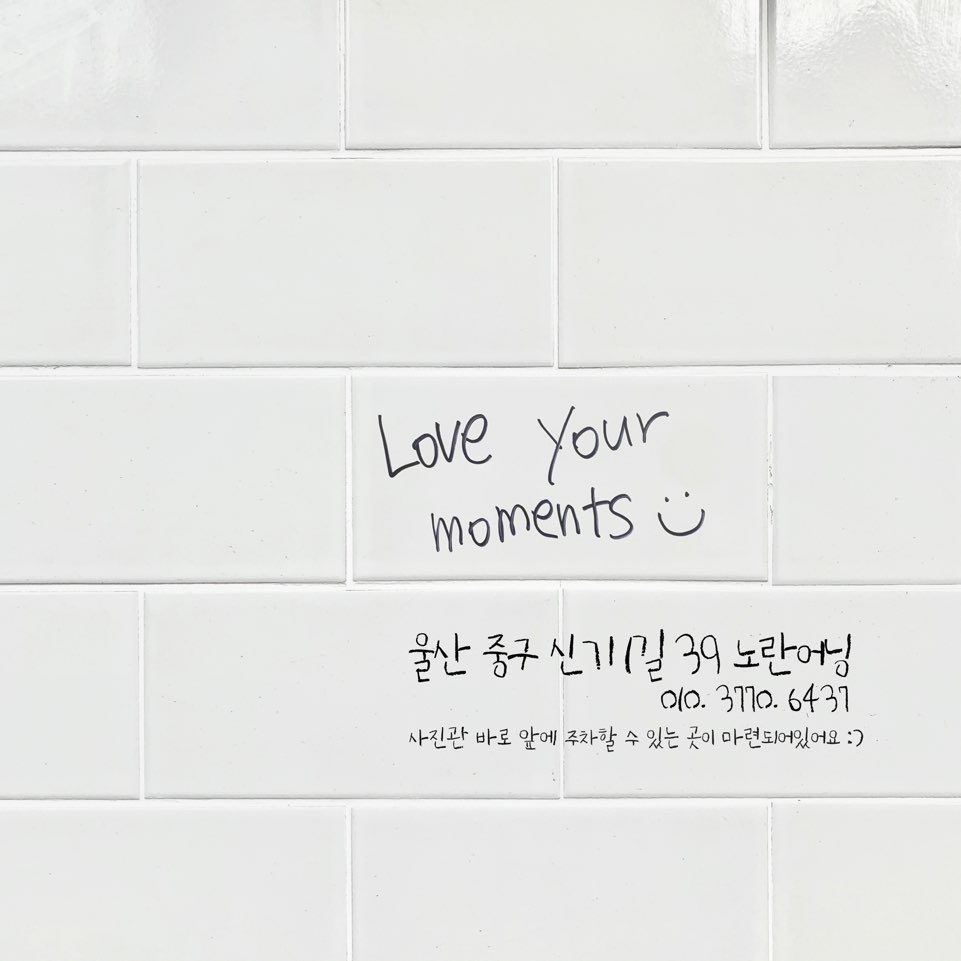 Love Your
moments
울산 중구 신기1길 39 노란어닝
010. 3770. 6437
사진관 바로 앞에 주차할 수 있는 곳이 마련되어있어요 :)